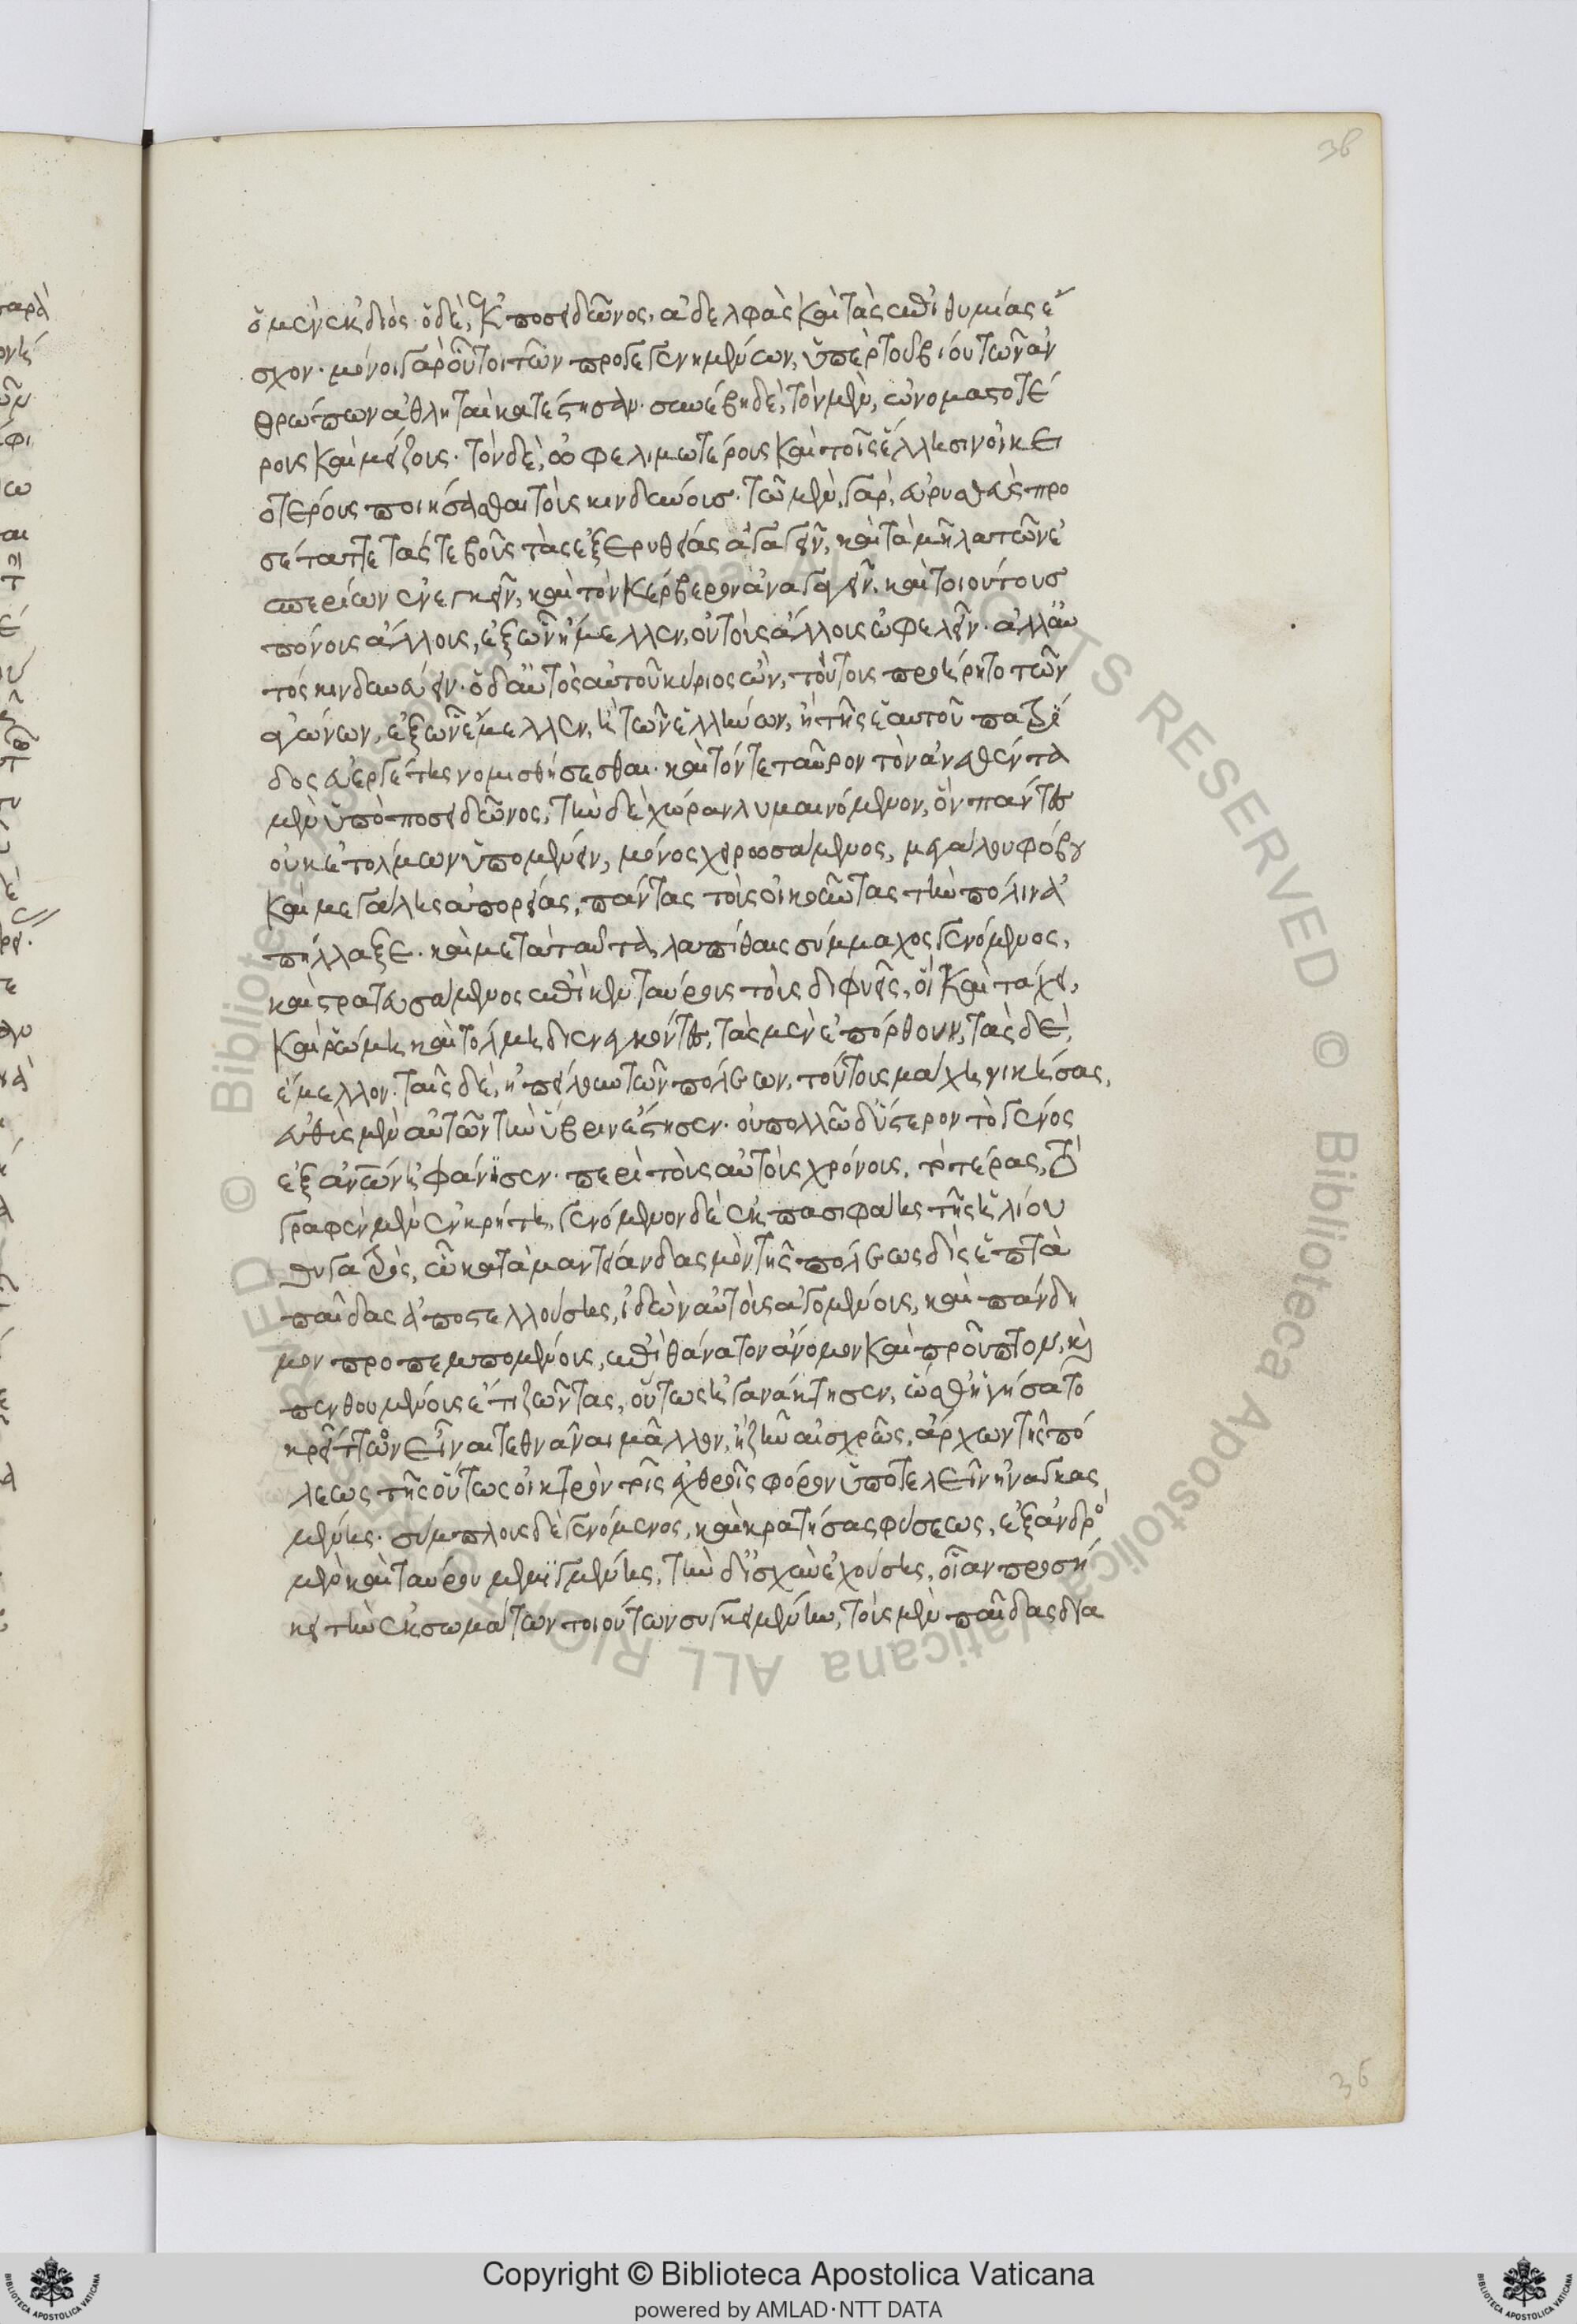 38
ὁ μὲν ἐκ διός· ὁ δὲ, ἐκ ποσειδῶνος, ἀδελφὰς καὶ τὰς ἐπιθυμίας ἔ
σχον· μόνοι γὰρ οὗτοι τῶν προγεγενημένων, ὑπὲρ τοῦ βίου τῶν ἀν
θρώπων ἀθληταὶ κατέστησαν· συνέβη δὲ, τὸν μὲν, ὀνομαστοτέ
ρους καὶ μείζους· τὸν δὲ, ὠφελιμωτέρους καὶ τοῖς ἕλλησιν οἰκει
οτέρους ποιήσασθαι τοὺς κινδύνους· τῶ μὲν, γὰρ, εὐρυσθεὺς προ
σέταττε τάς τε βοῦς τὰς ἐξ ἐρυθείας ἀγαγεῖν, καὶ τὰ μῆλα τῶν ἑ
σπερίων ἐνεγκεῖν, καὶ τὸν κέρβερον ἀναγαγεῖν, καὶ τοιούτους
πόνους ἄλλους, ἐξ ὧν ἤμελλεν, οὐ τοὺς ἄλλους ὠφελεῖν· ἀλλ' αὐ
τὸς κινδυνεύειν· ὁ δ' αὐτὸς αὑτοῦ κύριος ὢν, τούτους προῃρεῖτο τῶν
ἀγώνων, ἐξ ὧν ἔμελλεν, ἢ τῶν ἑλλήνων, ἢ τῆς ἑαυτοῦ πατρί
δος εὐεργέτης νομισθήσεσθαι· καὶ τόν τε ταῦρον τὸν ἀνεθέντα
μὲν ὑπὸ ποσειδῶνος, τὴν δὲ χώραν λυμαινόμενον, ὃν πάντες
οὐκ ἐτόλμων ὑπομένειν, μόνος χειρωσάμενος, μεγάλου φόβου
καὶ μεγάλης ἀπορίας, πάντας τοὺς οἰκοῦντας τὴν πόλιν ἀ
πήλλαξε· καὶ μετὰ ταῦτα, λαπίθαις σύμμαχος γενόμενος,
καὶ στρατευσάμενος ἐπὶ κενταύρους τοὺς διφυεῖς, οἳ καὶ τάχει,
καὶ ῥώμη καὶ τόλμη διενεγκόντες, τὰς μὲν ἐπόρθουν, τὰς δὲ,
ἔμελλον· ταῖς δὲ, ἠπείλουν τῶν πόλεων, τούτους μάχη νικήσας,
εὐθὺς μὲν αὐτῶν τὴν ὕβριν ἔστησεν· οὐ πολλῶ δ' ὕστερον τὸ γένος
ἐξ ἀν̅ω̅ν ἠφάνισεν· περὶ τοὺς αὐτοὺς χρόνους, τὸ τέρας, τὸ
τραφὲν μὲν ἐν κρήτη, γενόμενον δὲ ἐκ πασιφάης τῆς ἡλίου
θυγατρὸς, ὧ κατὰ μαντείαν δασμὸν τῆς πόλεως δὶς ἑπτὰ
παῖδας ἀποστελλούσης, ἰδὼν αὐτοὺς ἀγομένους, καὶ πανδη
μον προπεμπομένους, ἐπὶ θάνατον ἄνομον καὶ προῦπτον, καὶ
πενθουμένους ἔτι ζῶντας, οὕτως ἠγανάκτησεν, ὥσθ' ἡγήσατο
κρεῖττον εἶναι τεθνᾶναι μᾶλλον, ἢ ζῆν αἰσχρῶς, ἄρχων τῆς πό
λεως τῆς οὕτως οἰκτρὸν τοῖς ἐχθροῖς φόρον ὑποτελεῖν ἠναγκας
μένης· σύμπλους δὲ γενόμενος, καὶ κρατήσας φύσεως, ἐξ ἀνδρὸ
μὲν καὶ ταύρου μεμιγμένης, τὴν δ' ἰσχὺν ἐχούσης, οἵαν προσή
κει τὴν ἐκ σωμάτων τοιούτων συγκειμένην, τοὺς μὲν παῖδας δια
36
Copyright © Biblioteca Apostolica Vaticana
powered by AMLAD·NTT DATA